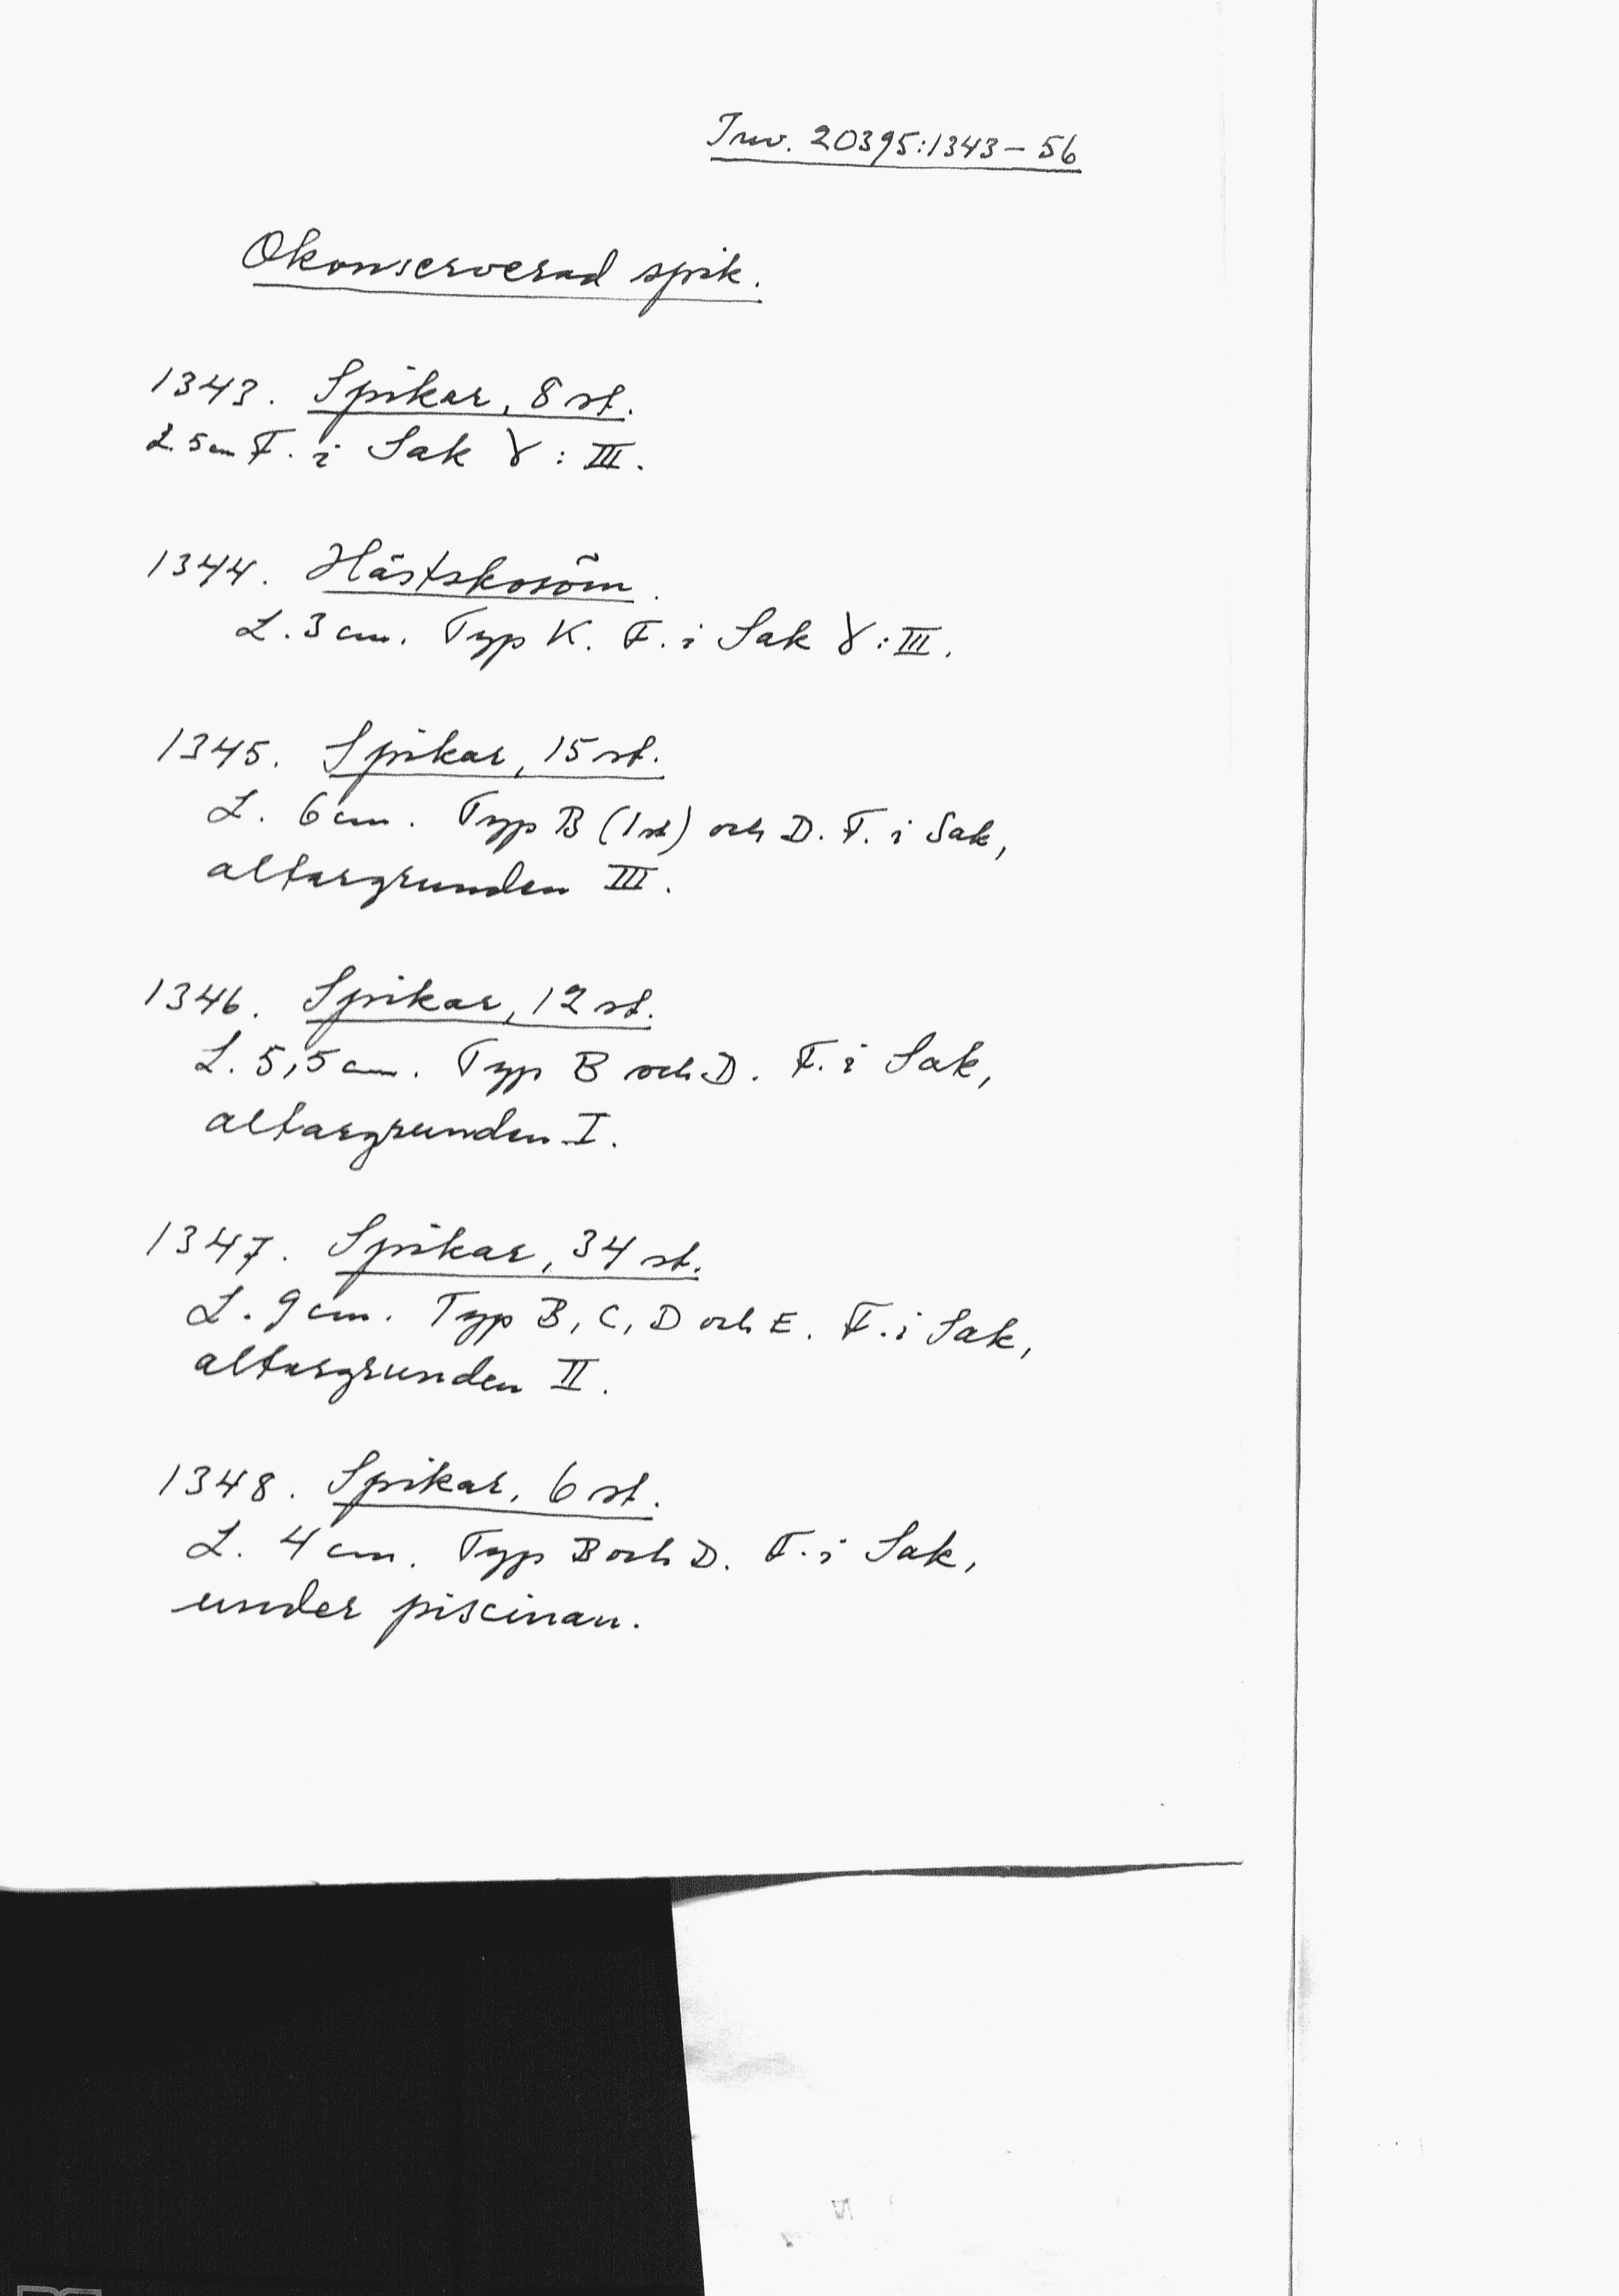 Inv. 20395:1343-56
Okonserverad spik.
1343. Spikar, 8 st.
L. 5 cm F. i Sak γ : III.
1344. Hästskosöm.
L. 3 cm. Typ K. F. i Sak γ : III.
1345. Spikar, 15 st.
L. 6 cm. Typ B (1 st) och D. F. i Sak,
altargrunden III.
1346. Spikar, 12 st.
L. 5,5 cm. Typ B och D. F. i Sak,
altargrunden I.
1347. Spikar, 34 st.
L. 9 cm. Typ B, C, D och E. F. i Sak,
altargrunden II.
1348. Spikar, 6 st.
L. 4 cm. Typ B och D. F. i Sak,
under piscinan.